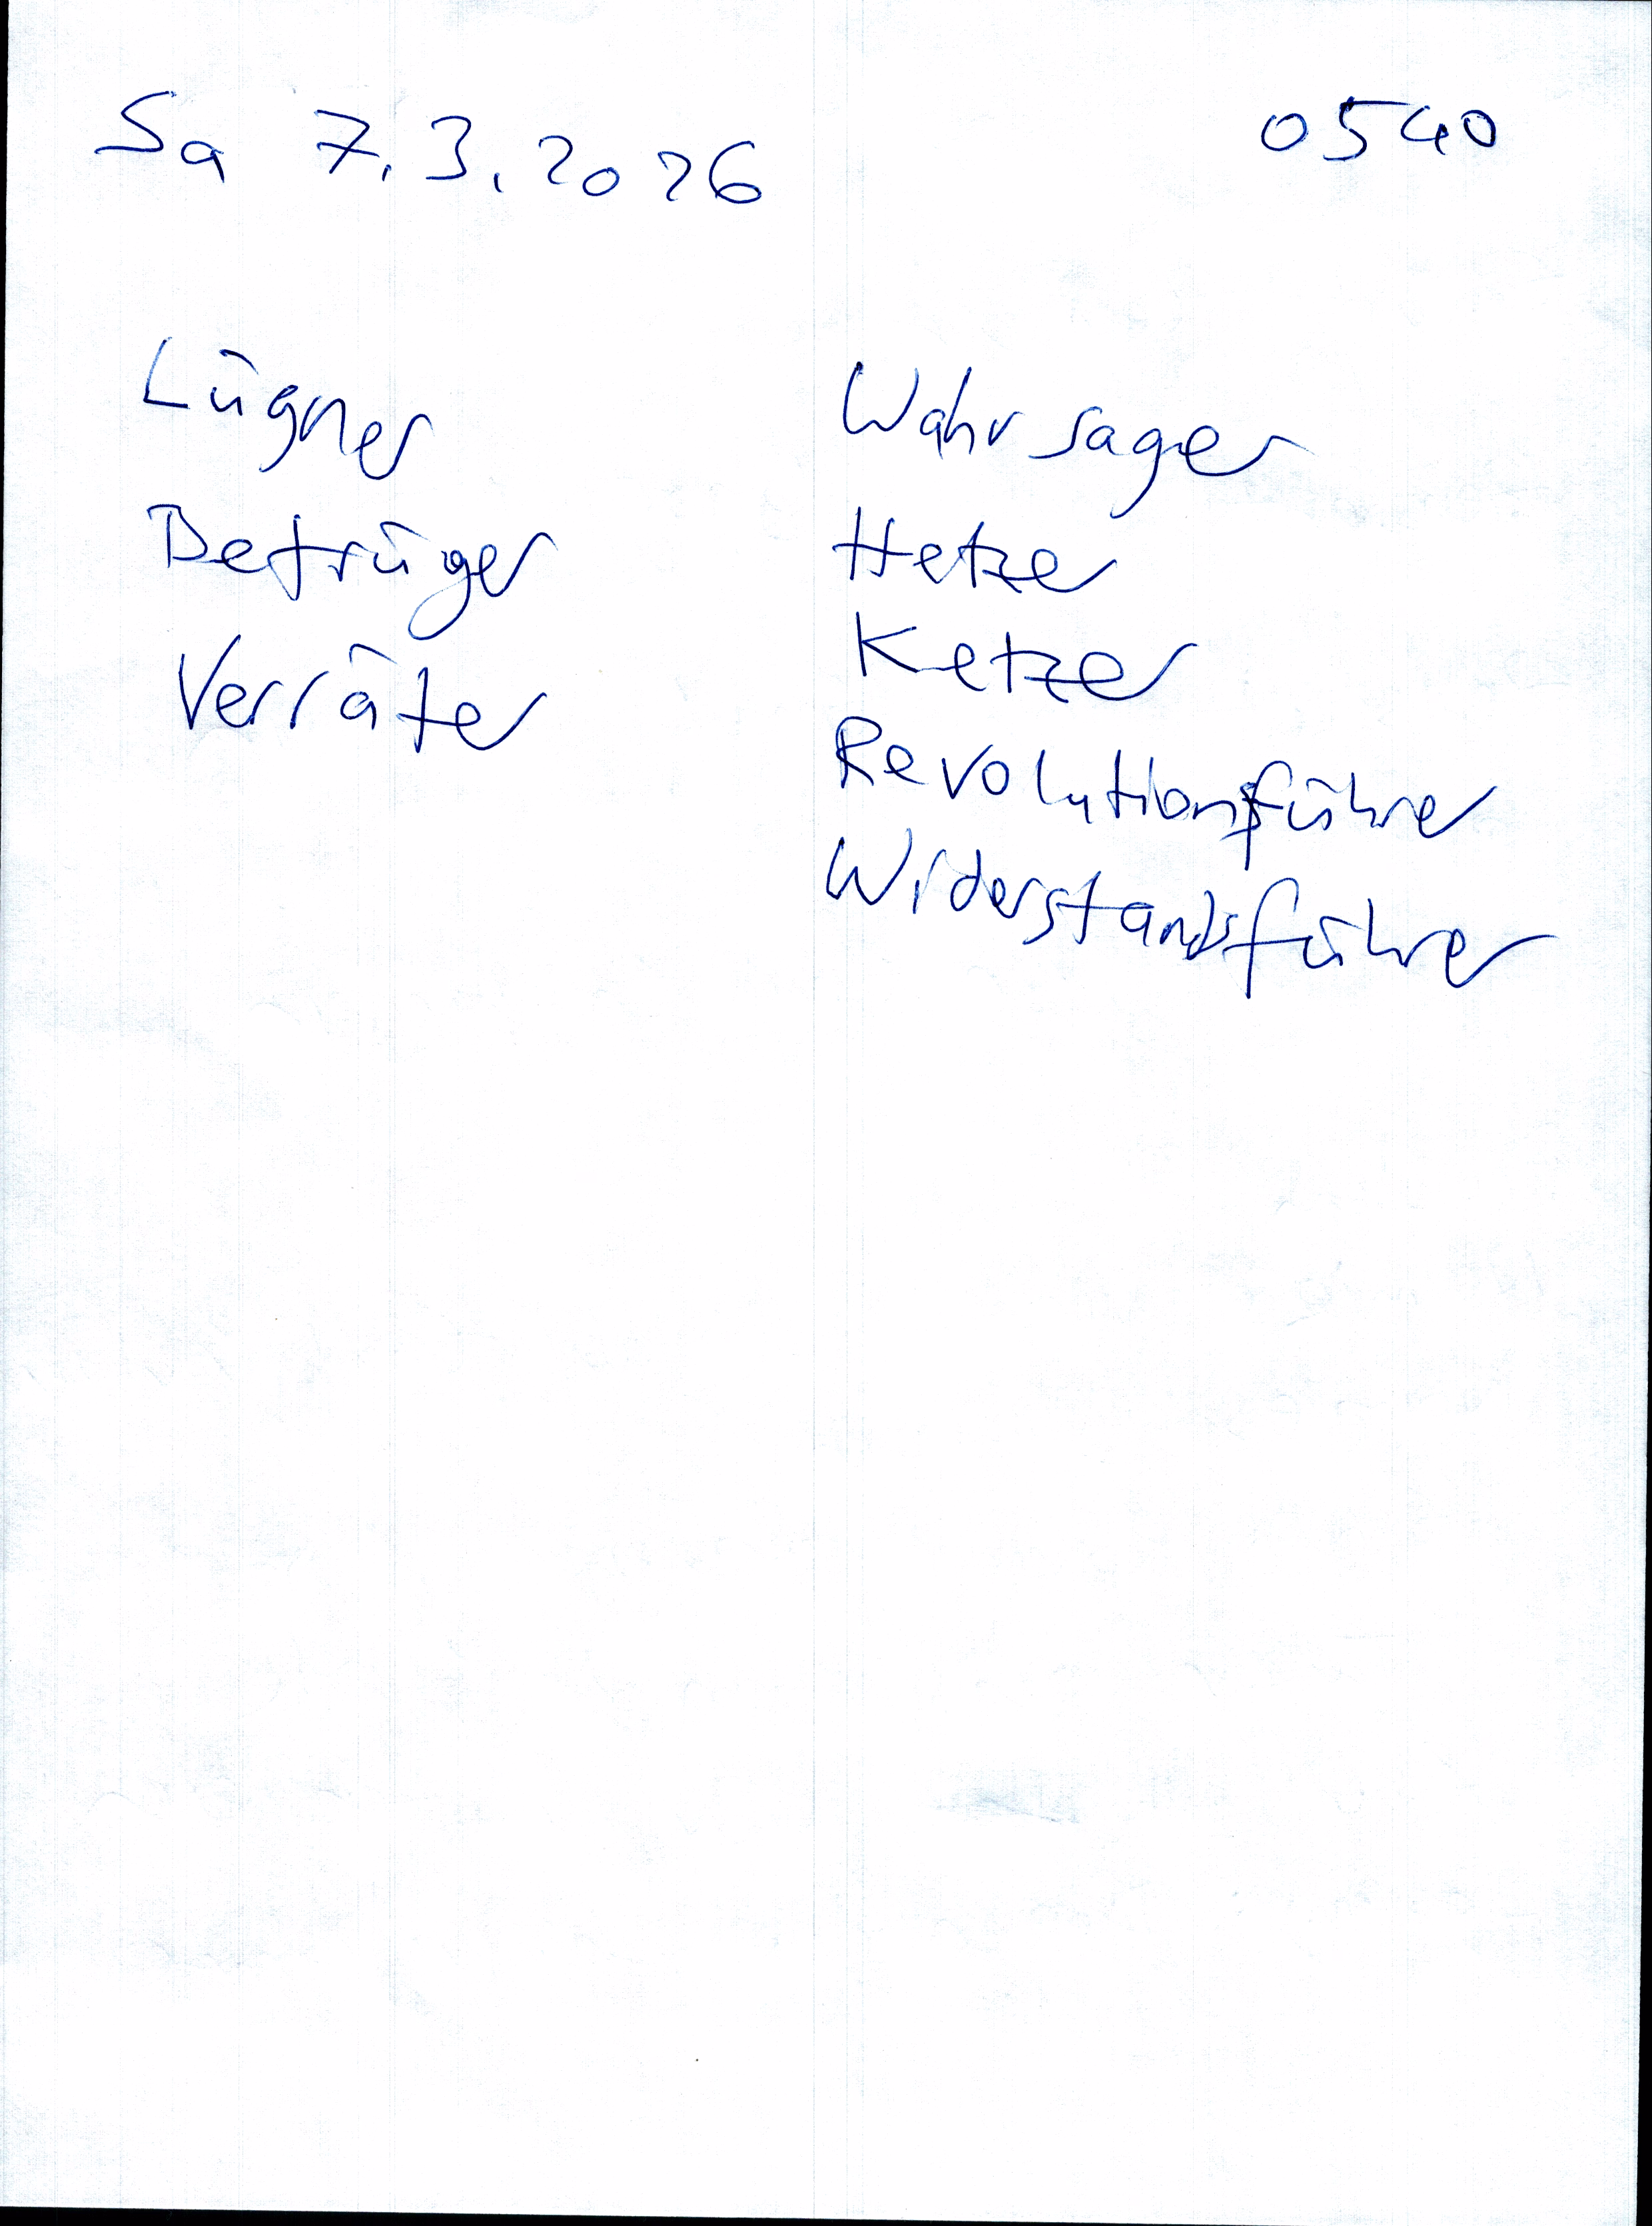 Sa 7.3.2026 0540
Lügner Wahrsager
Betrüger Hetzer
Verräter Ketzer
Revolutionsführer
Widerstandsführer